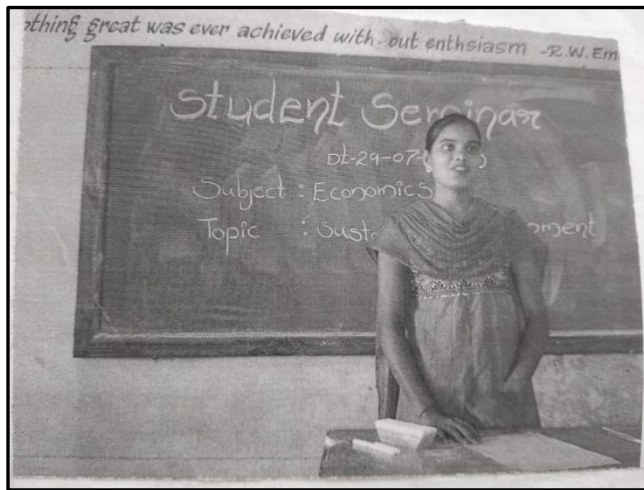 othing great was ever achieved with out enthsiasm -R.W.Em
Student Seminar
Dt-29-07-
Subject : Economics
Topic :